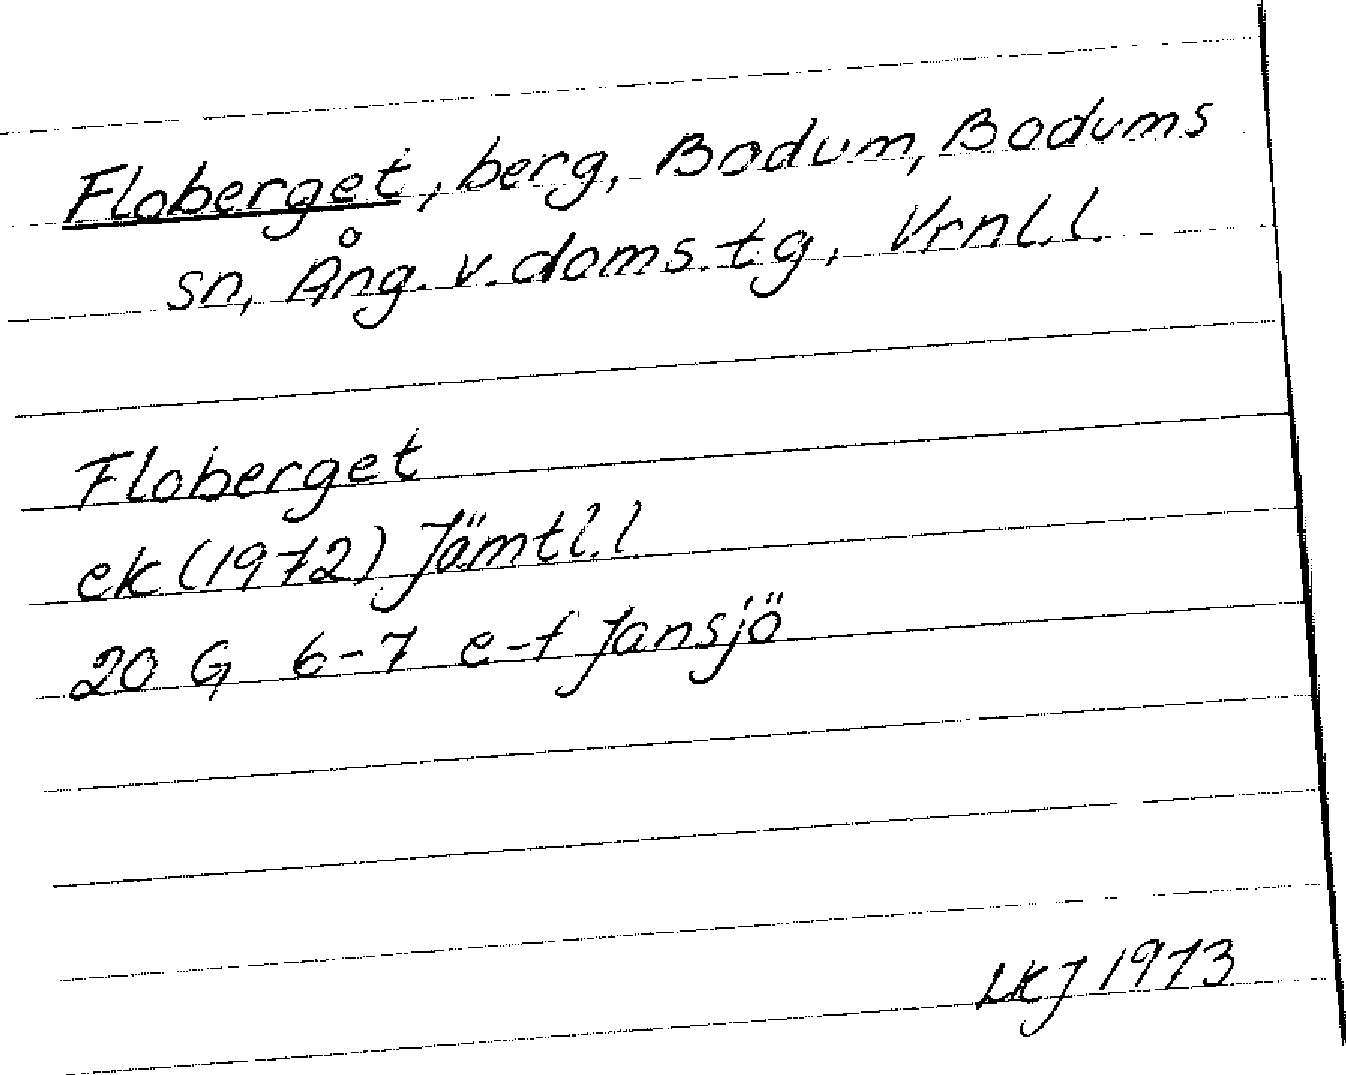 Floberget, berg, Bodum, Bodums
sn, Ång. v. doms. tg, Vrnl. l.
Floberget
ek (1972) Jämtl. l
20 G 6-7 e-f Jansjö
LKJ 1973